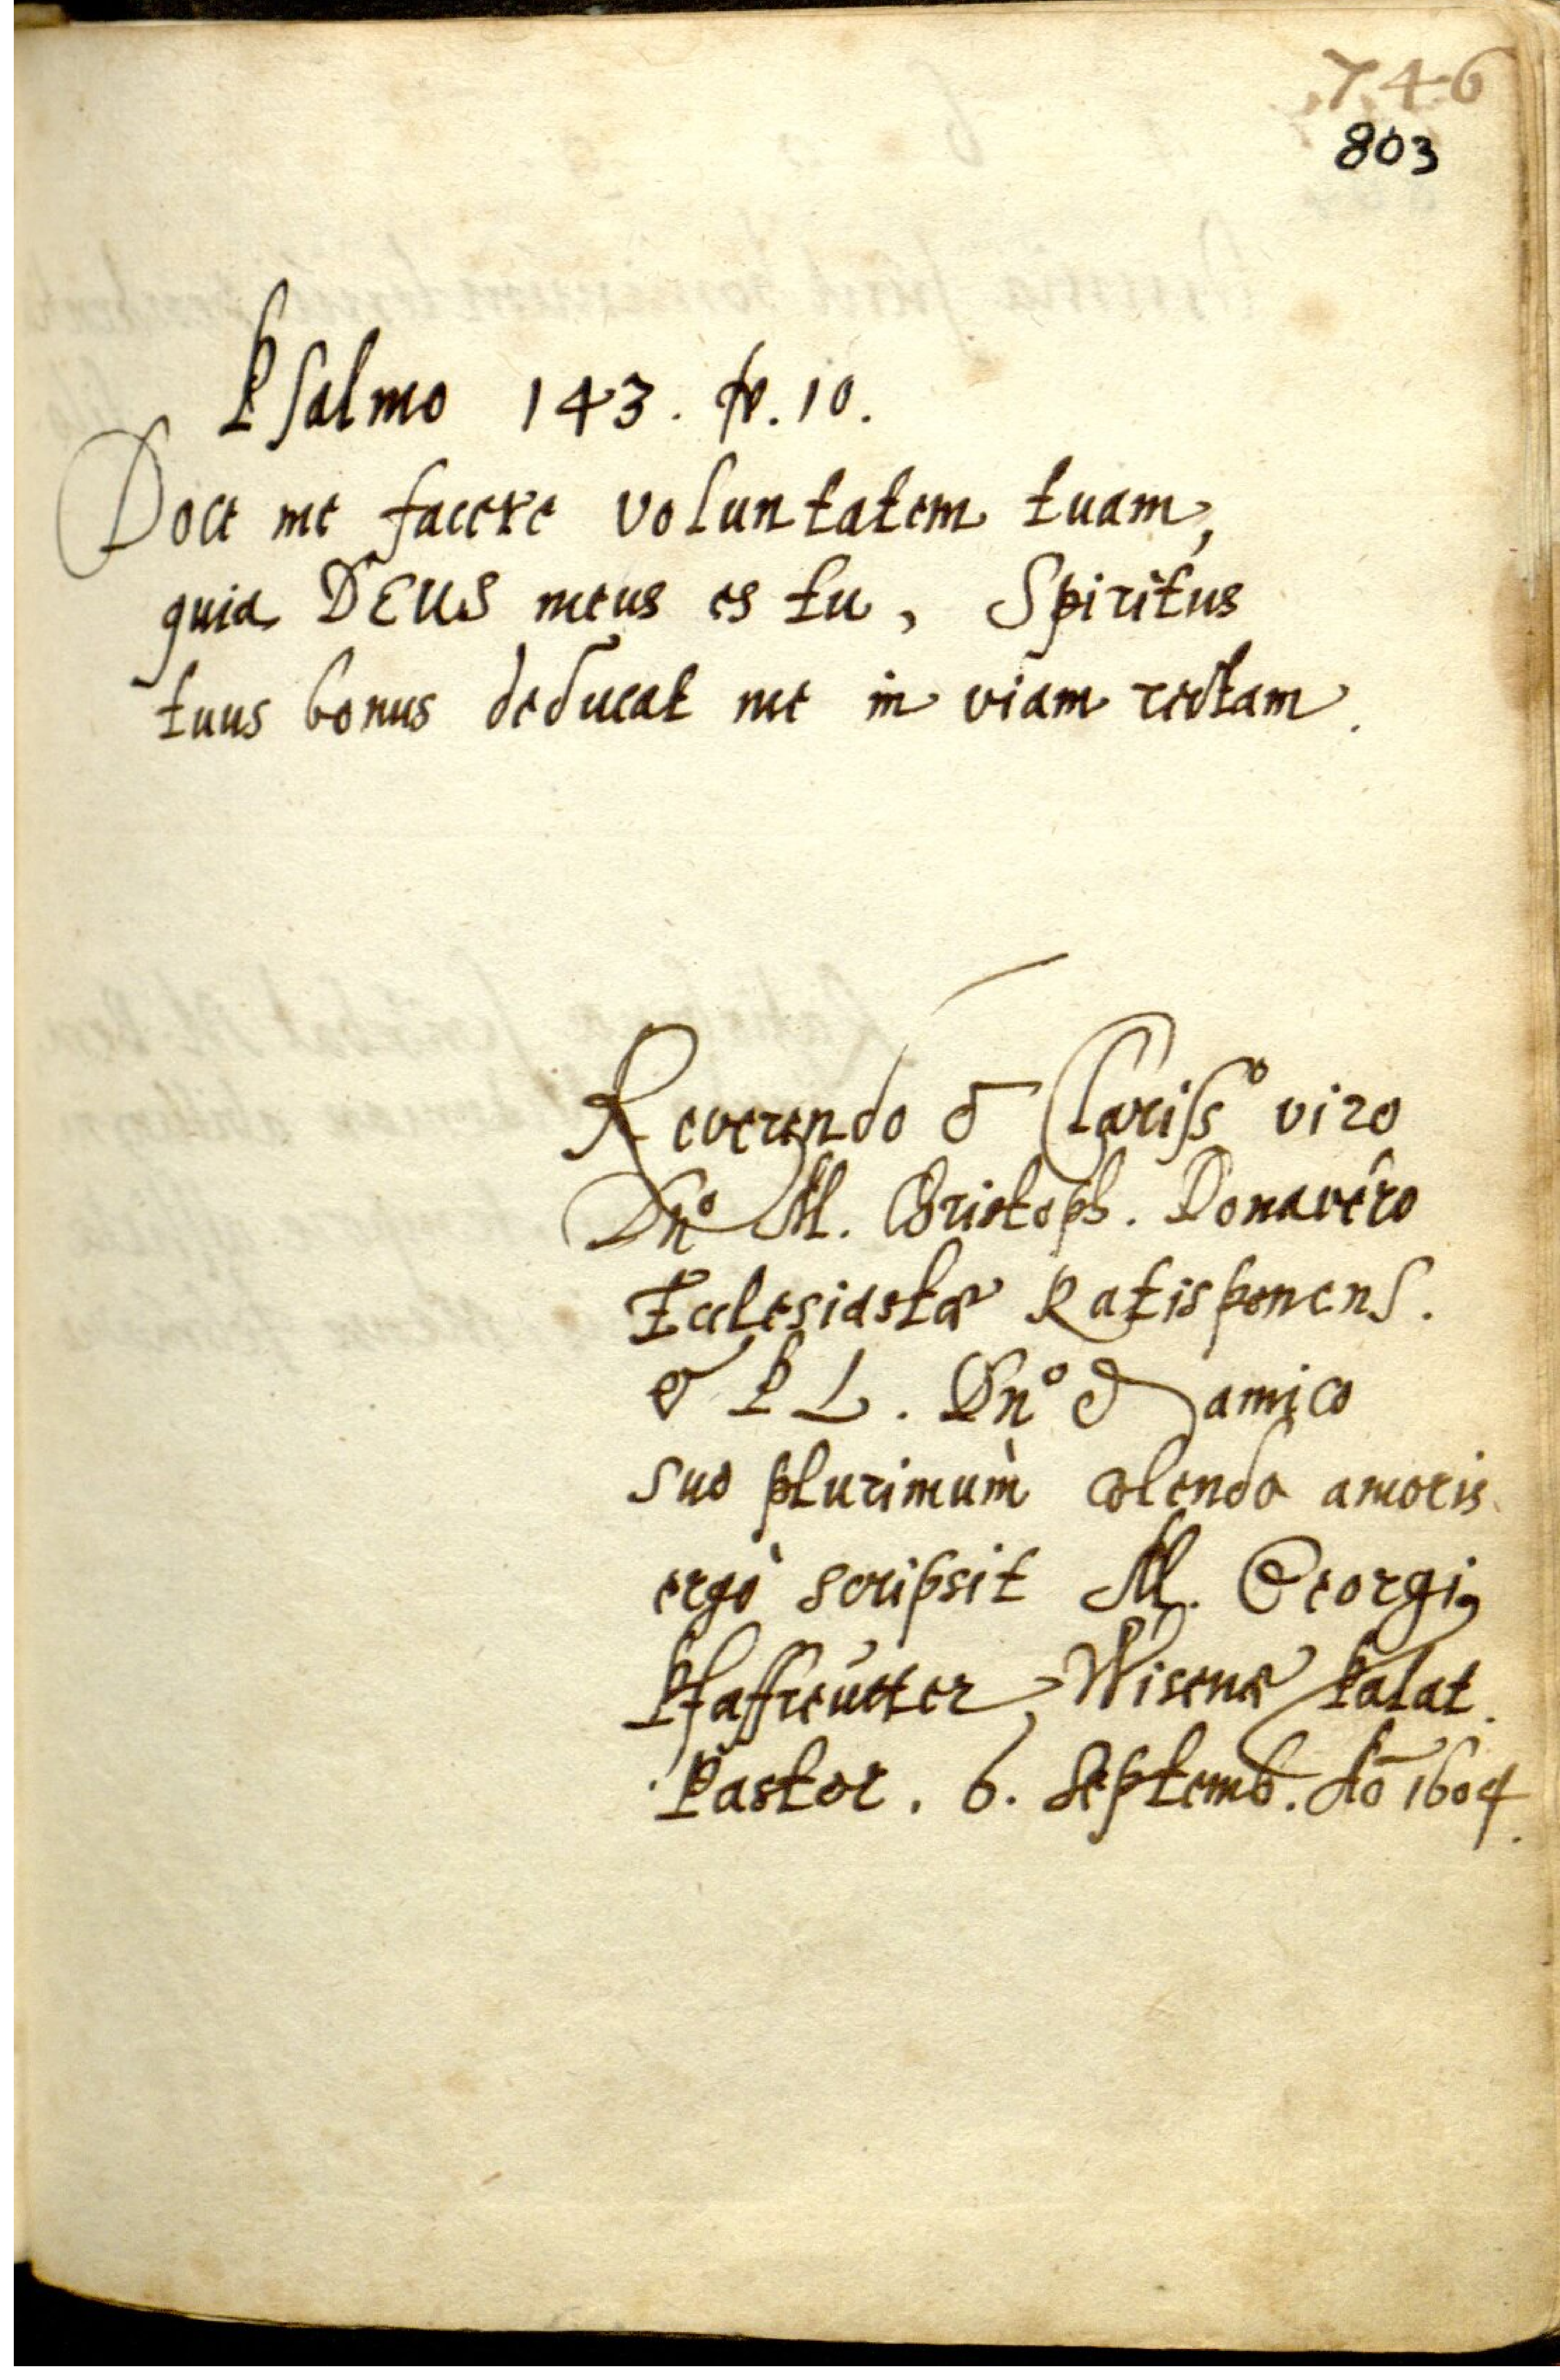 746
803
Psalmo 143. ℣. 10.
Doce me facere voluntatem tuam,
quia DEUS meus es tu, Spiritus
tuus bonus deducat me in viam rectam.
Reverendo & Clariss° viro
Dn° M. Christoph. Donavero
Ecclesiastæ Ratisponens.
& P L. Dn° & amico
suo plurimùm colendo amoris
ergò scripsit M. Georgi9
Pfaffreütter, Wisenæ Palat.
Pastor. 6. Septemb. Aō 1604.